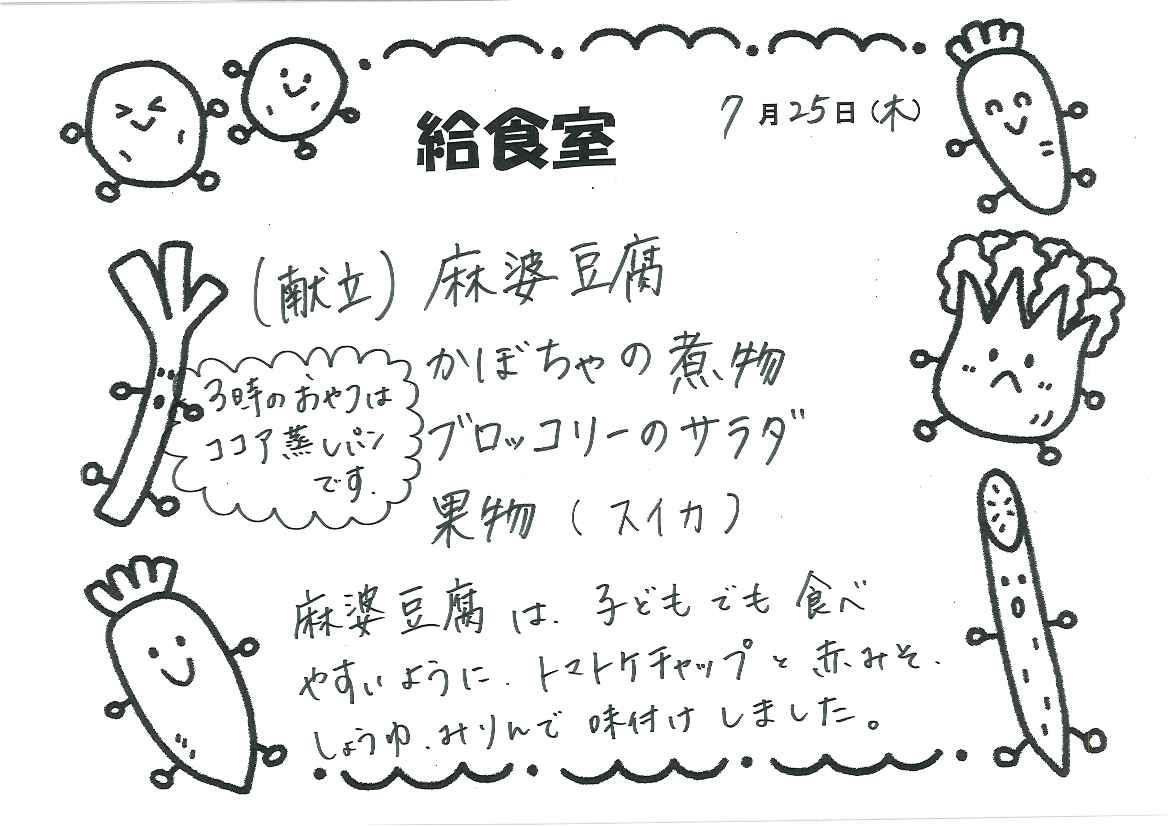 給食室
7月25日(木)
(献立) 麻婆豆腐
かぼちゃの煮物
ブロッコリーのサラダ
果物(スイカ)
3時のおやつは
ココア蒸しパン
です.
麻婆豆腐は、子どもでも食べ
やすいように、トマトケチャップと赤みそ、
しょうゆ、みりんで味付けしました。